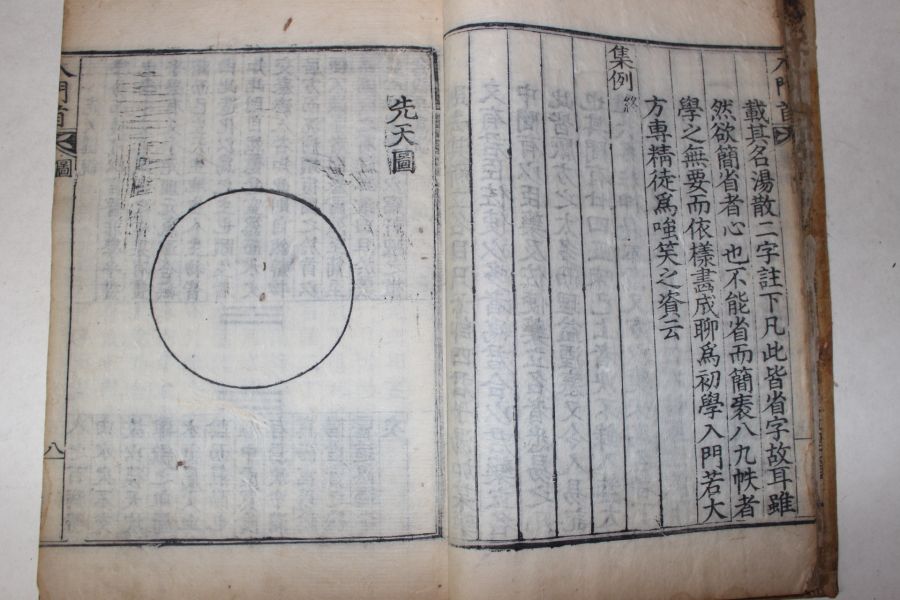 載其名湯散二字註下凡此皆省字故耳雖
然欲簡省者心也不能省而簡袠八九帙者
學之無要而依樣畵成聊爲初學入門若大
方專精徒爲嗤笑之資云
集例 終
先天圖
入門首
圖
八